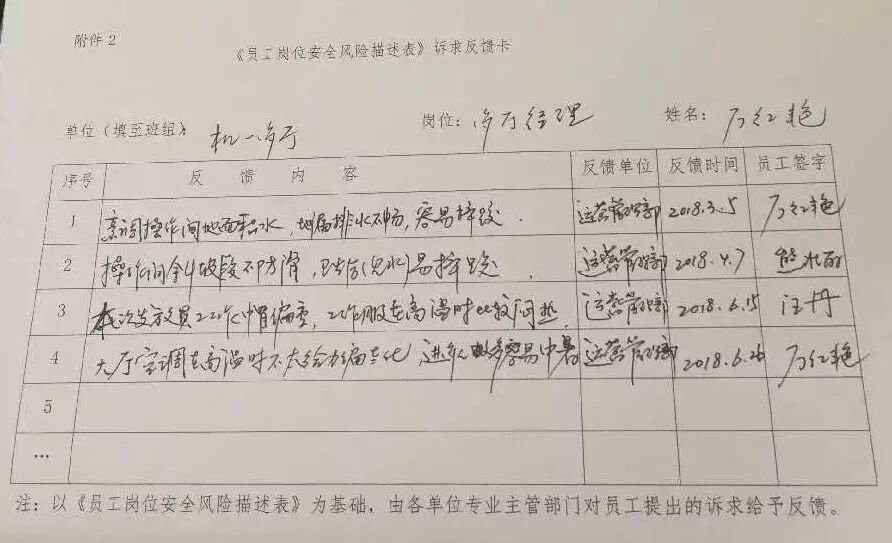 附件2
《员工岗位安全风险描述表》诉求反馈卡
单位(填至班组): 机一餐厅 岗位: 餐厅经理 姓名: 万红艳
序号 反馈内容 反馈单位 反馈时间 员工签字
1 烹调操作间地面积水,地漏排水不畅,容易摔跤. 运营管理部 2018.3.5 万红艳
2 操作间斜坡段不防滑, (见水)易摔跤. 运营管理部 2018.4.7 熊
3 工作帽偏重,工作服在高温时比较闷热. 运营管理部 2018.6.15 汪丹
4 大厅空调在高温时不太给力偏老化 容易中暑 运营管理部 2018.6.26 万红艳
5
…
注:以《员工岗位安全风险描述表》为基础,由各单位专业主管部门对员工提出的诉求给予反馈。